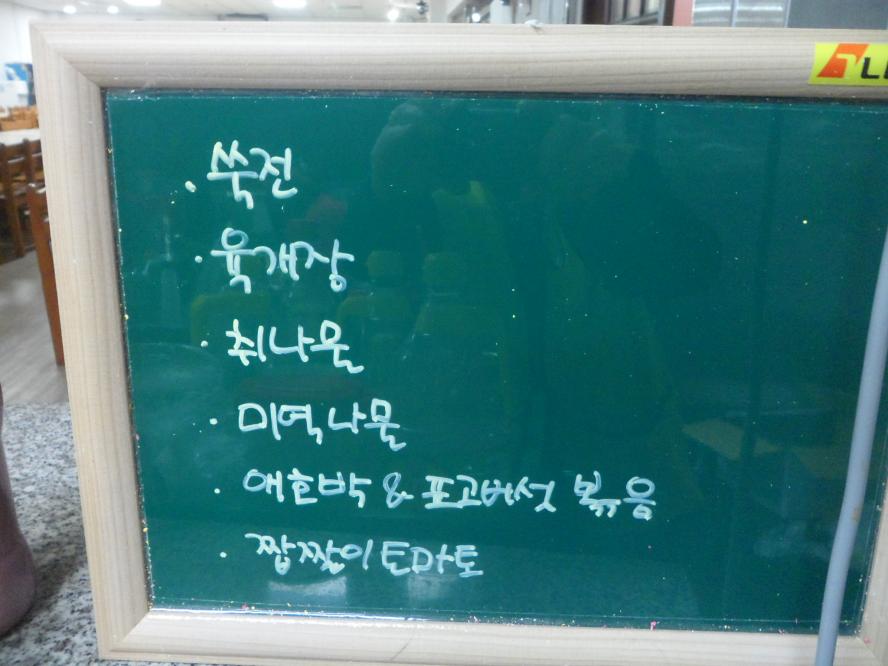 · 쑥전
· 육개장
· 취나물
· 미역나물
· 애호박 & 표고버섯 볶음
· 짭짤이토마토